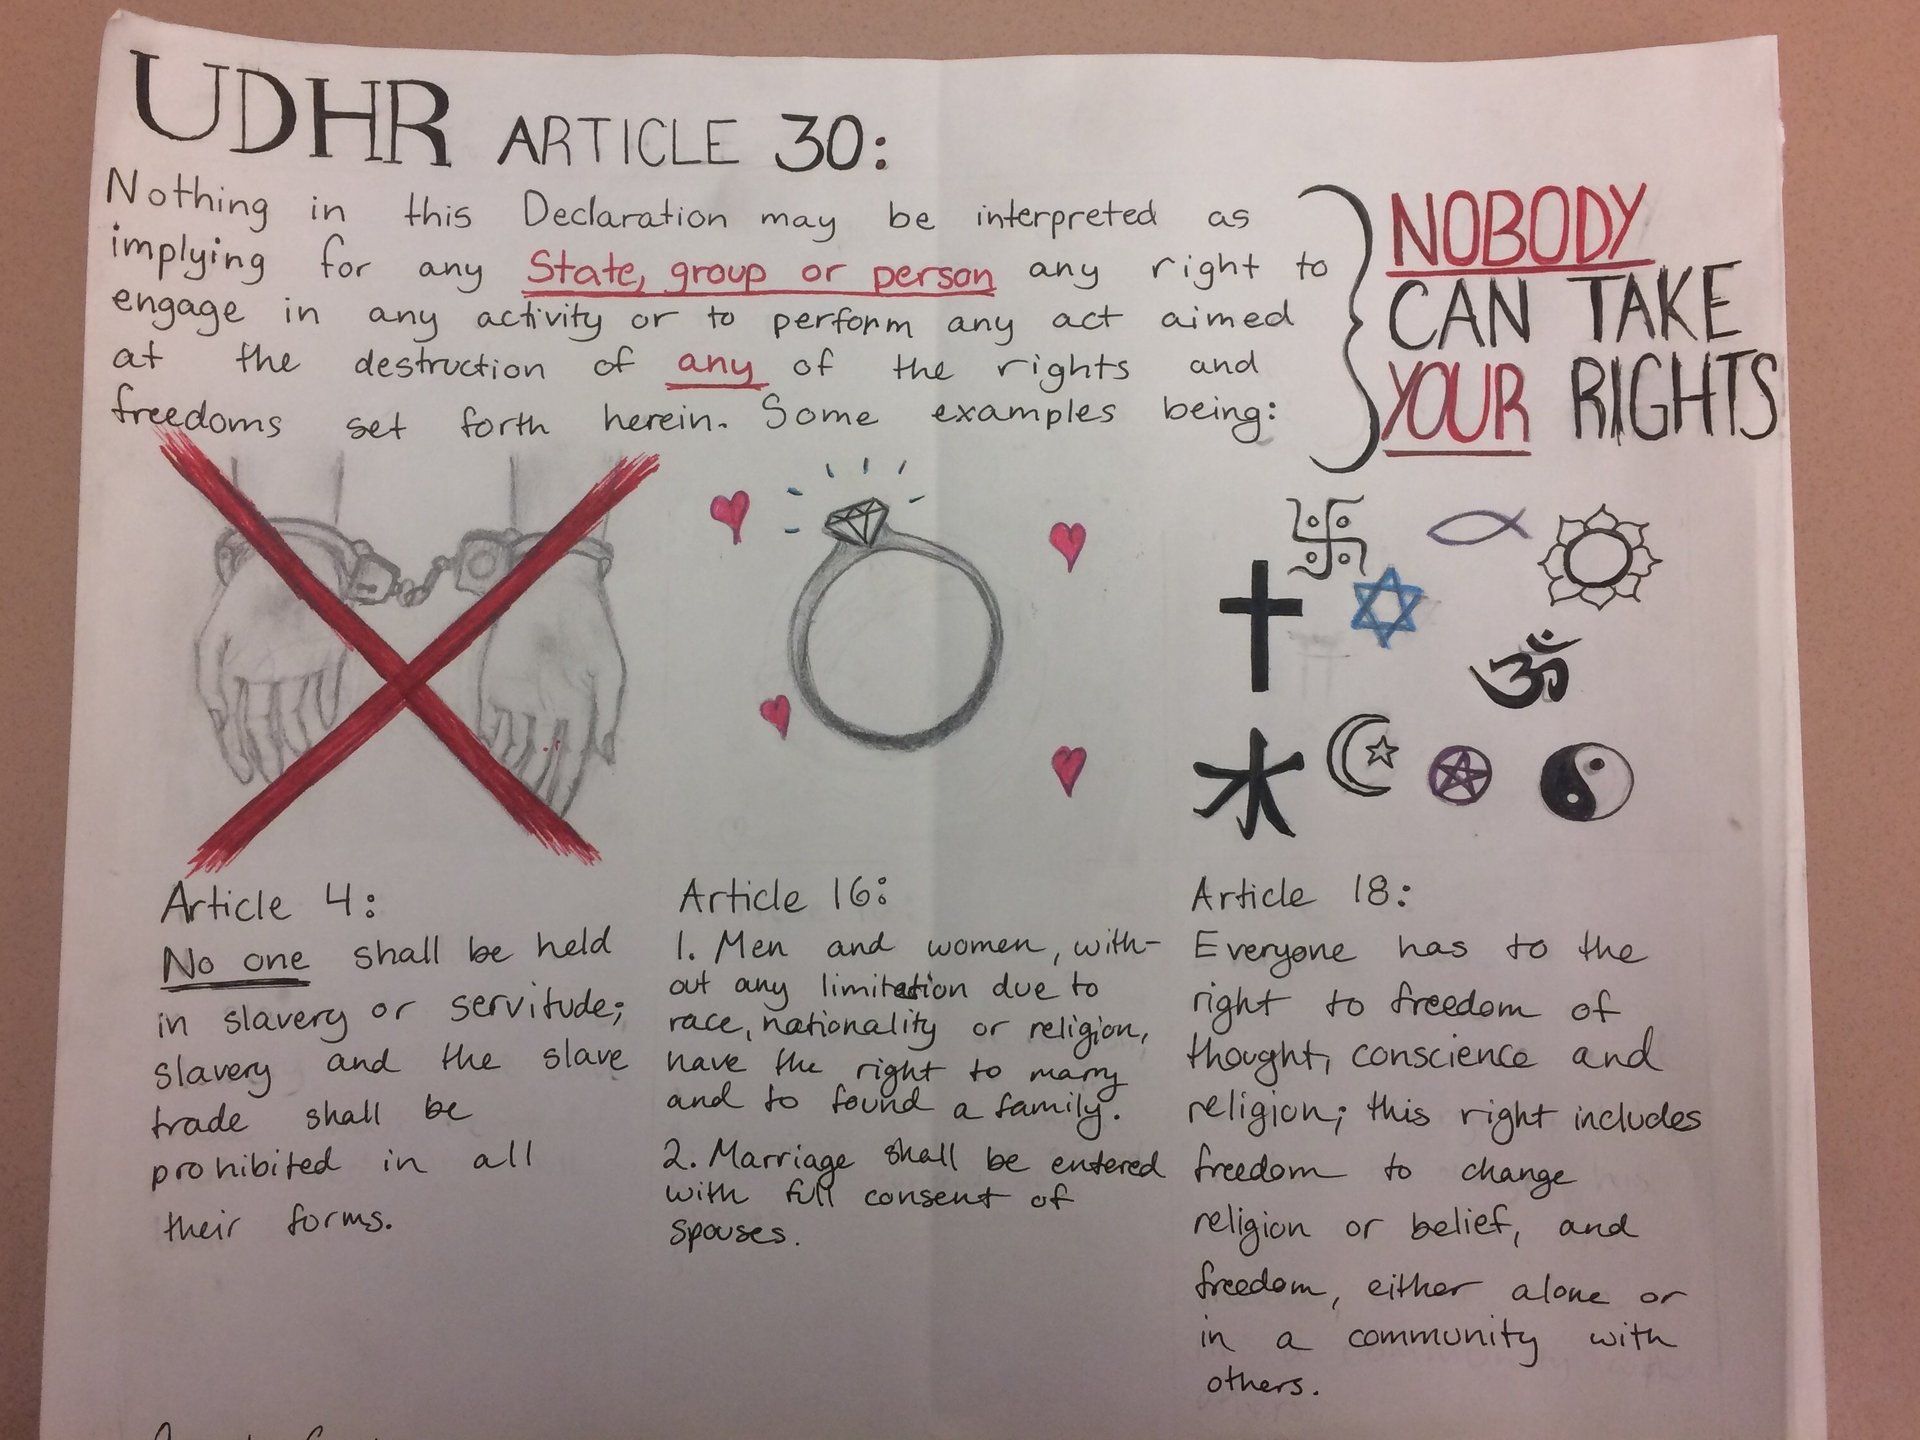 UDHR ARTICLE 30:
Nothing in this Declaration may be interpreted as
implying for any State, group or person any right to
engage in any activity or to perform any act aimed
at the destruction of any of the rights and
freedoms set forth herein. Some examples being:
NOBODY
CAN TAKE
YOUR RIGHTS
Article 4:
No one shall be held
in slavery or servitude;
slavery and the slave
trade shall be
prohibited in all
their forms.
Article 16:
1. Men and women, with-
out any limitation due to
race, nationality or religion,
have the right to marry
and to found a family.
2. Marriage shall be entered
with full consent of
spouses.
Article 18:
Everyone has to the
right to freedom of
thought, conscience and
religion; this right includes
freedom to change
religion or belief, and
freedom, either alone or
in a community with
others.
ॐ